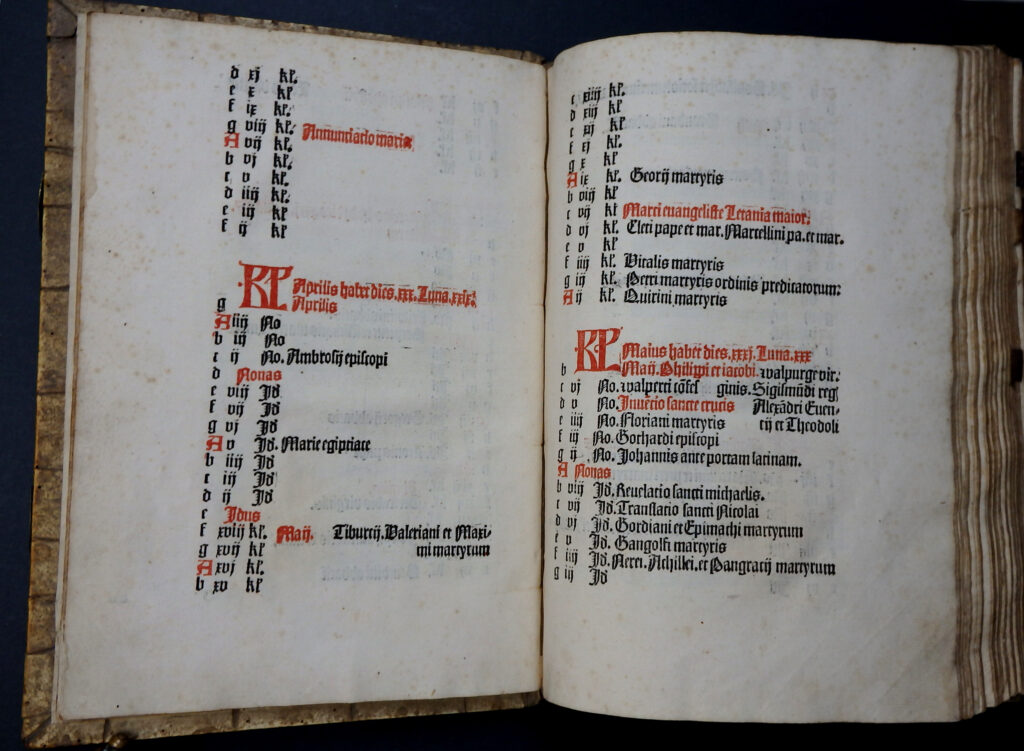 d xj kl'.
e x kl'
f ix kl'.
g viij kl'. Annunciatio marie
A vij kl'.
b vj kl'.
c v kl'.
d iiij kl'
e iij kl'
f ij kl'
KL Aprilis habet dies .xxx. Luna .xxix.
g Aprilis
A iiij No
b iij No
c ij No. Ambrosij episcopi
d Nonas
e viij Jd'
f vij Jd'
g vj Jd'
A v Jd'. Marie egiptiace
b iiij Jd'
c iij Jd'
d ij Jd'
e Jdus
f xviij kl'. Maij. Tiburcij. Valeriani et Maxi-
g xvij kl'. mi martyrum
A xvj kl'
b xv kl'
c xiiij kl'.
d xiij kl'
e xij kl'
f xj kl'.
g x kl'
A ix kl'. Georij martyris
b viij kl'
c vij kl' Marci euangeliste Letania maior.
d vj kl'. Cleti pape et mar. Marcellini pa. et mar.
e v kl'
f iiij kl'. Vitalis martyris
g iij kl'. Petri martyris ordinis predicatorum:
A ij kl'. Quirini martyris
KL Maius habet dies .xxxj. Luna .xxx
b Maij. Philippi et iacobi. walpurge vir:
c vj No. walperti cōfes ginis. Sigismūdi reg
d v No. Inuētio sancte crucis Alexādri Euen-
e iiij No. Floriani martyris tij et Theodoli
f iij No. Gothardi episcopi
g ij No. Johannis ante portam latinam.
A Nonas
b viij Jd'. Reuelatio sancti michaelis.
c vij Jd'. Translatio sancti Nicolai
d vj Jd'. Gordiani et Epimachi martyrum
e v Jd'. Gangolfi martyris
f iiij Jd'. Nerei. Achillei. et Pangracij martyrum
g iij Jd'